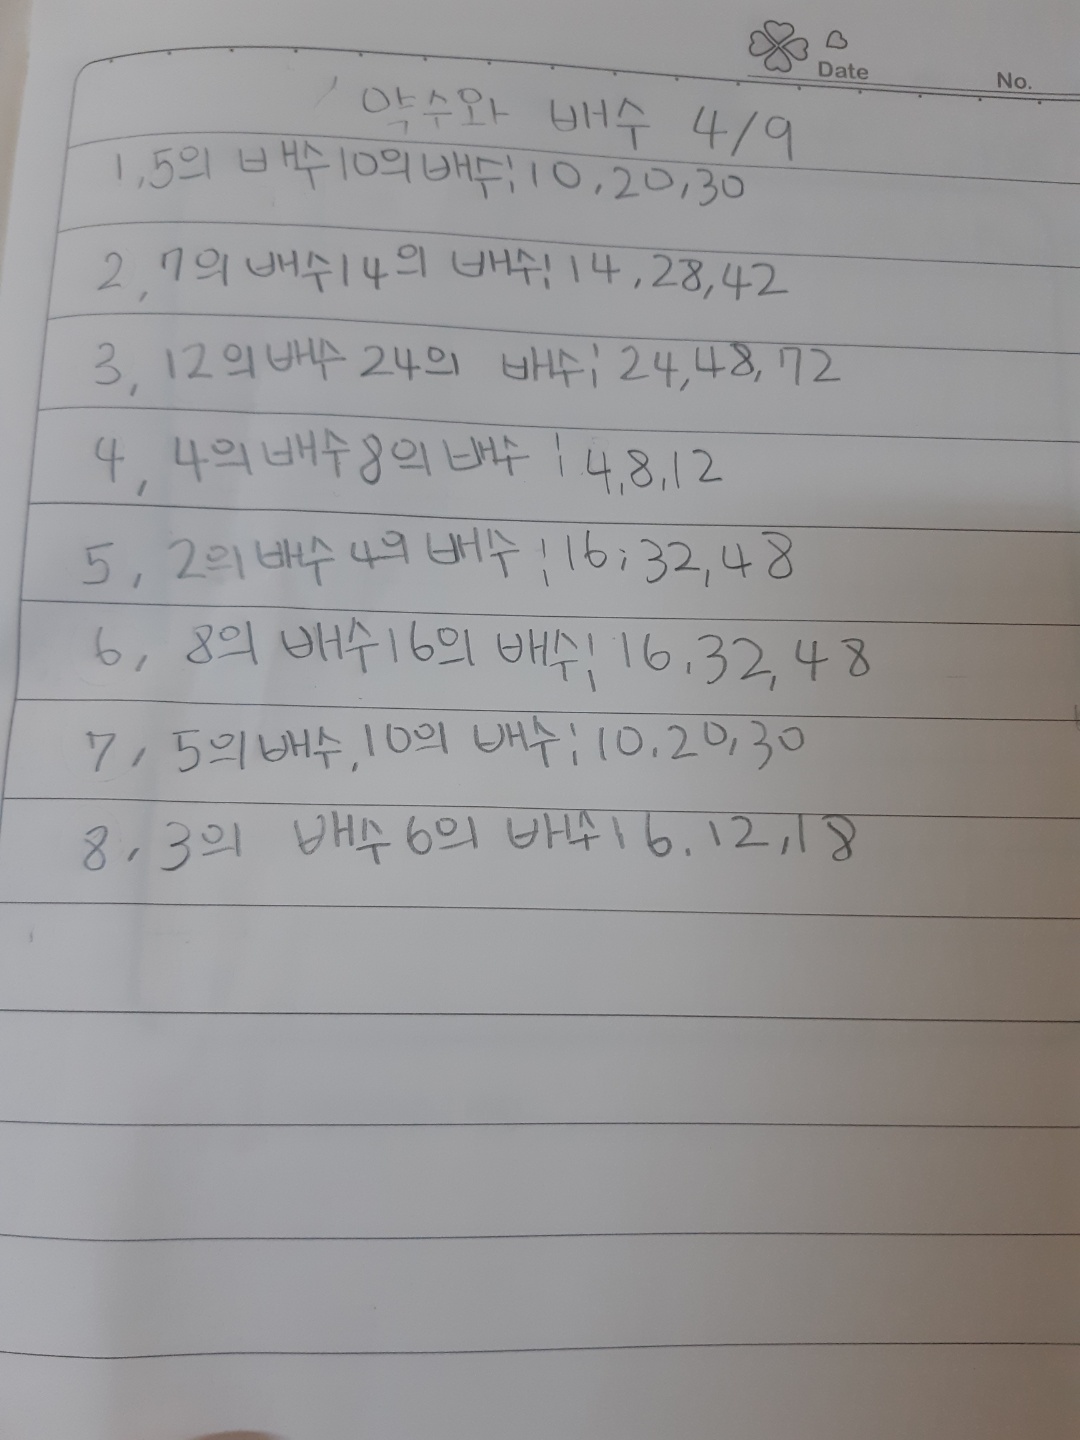 Date
No.
약수와 배수 4/9
1, 5의 배수 10의 배수; 10, 20, 30
2, 7의 배수 14의 배수; 14, 28, 42
3, 12의 배수 24의 배수; 24, 48, 72
4, 4의 배수 8의 배수; 4, 8, 12
5, 2의 배수 4의 배수; 16; 32, 48
6, 8의 배수 16의 배수; 16, 32, 48
7, 5의 배수, 10의 배수; 10, 20, 30
8, 3의 배수 6의 배수; 6, 12, 18